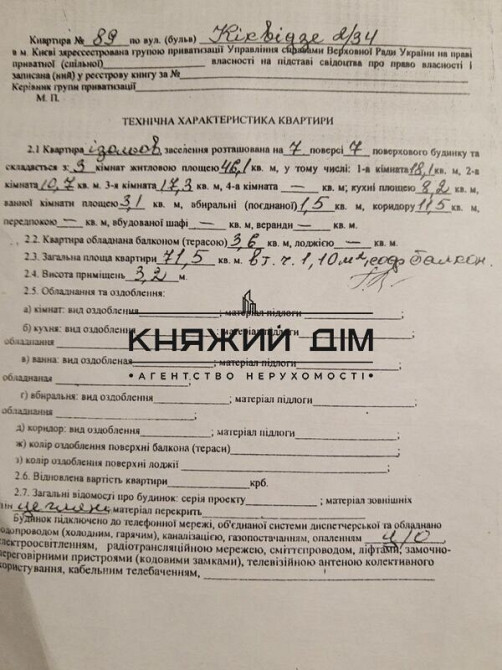 Квартира № 89 по вул. (бульв) Кіквідзе 2/34
в м. Києві зареєстрована групою приватизації Управління справами Верховної Ради України на праві
приватної (спільної) власності на підставі свідоцтва про право власності і
записана (ний) у реєстрову книгу за №
Керівник групи приватизації
М. П.
ТЕХНІЧНА ХАРАКТЕРИСТИКА КВАРТИРИ
2.1 Квартира ізольов заселення розташована на 7 поверсі 7 поверхового будинку та
складається з: 3 кімнат житловою площею 46,1 кв. м, у тому числі: 1-а кімната 18,1 кв. м, 2-а
кімната 10,7 кв. м. 3-я кімната 17,3 кв. м, 4-а кімната — кв. м; кухні площею 8,2 кв. м,
ванної кімнати площею 3,1 кв. м, вбиральні (поєднаної) 1,5 кв. м, коридору 11,5 кв. м,
передпокою — кв. м, вбудованої шафі — кв. м, веранди — кв. м.
2.2. Квартира обладнана балконом (терасою) 3,6 кв. м, лоджією — кв. м.
2.3. Загальна площа квартири 71,5 кв. м. в т. ч. 1,10 м², балкон.
2.4. Висота приміщень 3,2 м.
2.5. Обладнання та оздоблення:
а) кімнат: вид оздоблення ; матеріал підлоги ;
б) кухня: вид оздоблення ; матеріал підлоги
обладнання ;
КНЯЖИЙ ДІМ
в) ванна: вид оздоблення ; матеріал підлоги
• АГЕНТСТВО НЕРУХОМОСТІ •
обладнання ;
г) вбиральня: вид оздоблення ; матеріал підлоги ;
обладнання ;
д) коридор: вид оздоблення ; матеріал підлоги ;
ж) колір оздоблення поверхні балкона (тераси) ;
з) колір оздоблення поверхні лоджії ;
2.6. Відновлена вартість квартири крб.
2.7. Загальні відомості про будинок: серія проекту ; матеріал зовнішніх
; матеріал перекрить
Будинок підключено до телефонної мережі, об'єднаної системи диспетчерської та обладнано
водопроводом (холодним, гарячим), каналізацією, газопостачанням, опаленням ц/о
електроосвітленням, радіотрансляційною мережею, сміттєпроводом, ліфтами, замочно-
переговірними пристроями (кодовими замками), телевізійною антеною колективного
користування, кабельним телебаченням,